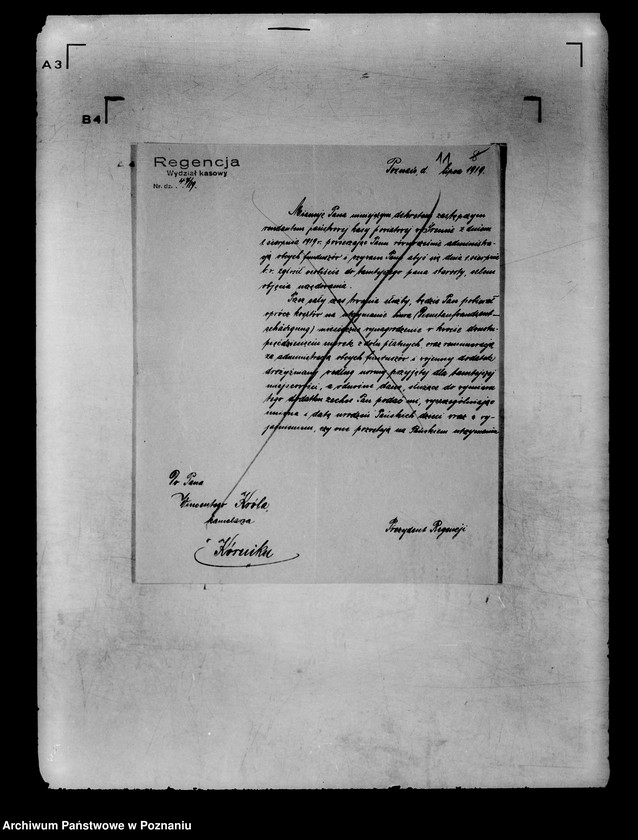 A3
B4
Regencja
Wydział kasowy
Nr. dz. 47/19.
Poznań, d. 11 lipca 1919.
8
Mianuję Pana niniejszym dekretem zastępczym
rendantem państwowej kasy powiatowej w Śremie z dniem
1 sierpnia 1919 r. poruczając Panu równocześnie administra-
cję obcych funduszów i wzywam Pana abyś się dnia 1. sierpnia
b. r. zgłosił osobiście do tamtejszego pana starosty, celem
objęcia urzędowania.
Przez cały czas trwania służby, będzie Pan pobierał
oprócz kosztów na utrzymanie biura (Dienstaufwandsent-
schädigung) miesięczne wynagrodzenie w kwocie
pięćdziesięciu marek z dołu płatnych, oraz remunerację
za administrację obcych funduszów i wojenny dodatek
drożyźniany według normy przyjętej dla tamtejszej
miejscowości, a odnośne dane, służące do wymiaru
tego dodatku zechce Pan podać mi, wyszczególniając
imiona i datę urodzin Pańskich dzieci oraz z wy-
jaśnieniem, czy one pozostają na Pańskiem utrzymaniu
Do Pana
Wincentego Króla,
w Kórniku
Prezydent Regencji
Archiwum Państwowe w Poznaniu